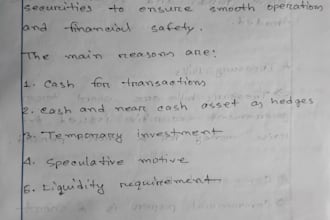 securities to ensure smooth operation
and financial safety.
The main reasons are:
1. Cash for transactions
2. cash and near cash asset as hedges
3. Temporary investment
4. Speculative motive
5. Liquidity requirement